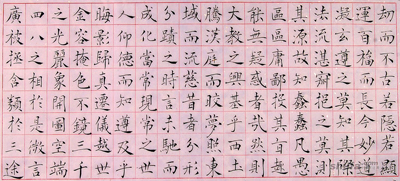 劫而不古若隱若顯
運百福而長今妙道
凝玄遵之莫知其際
法流湛寂挹之莫測
其源故知蠢蠢凡愚
區區庸鄙投其旨趣
能無疑惑者哉然則
大教之興基乎西土
騰漢庭而皎夢照東
域而流慈昔者分形
分蹟之時言未馳而
成化當常現常之世
人仰德而知遵及乎
晦影歸真遷儀越世
金容掩色不鏡三千
之光麗象開圖空端
四八之相於是微言
廣被拯含類於三途